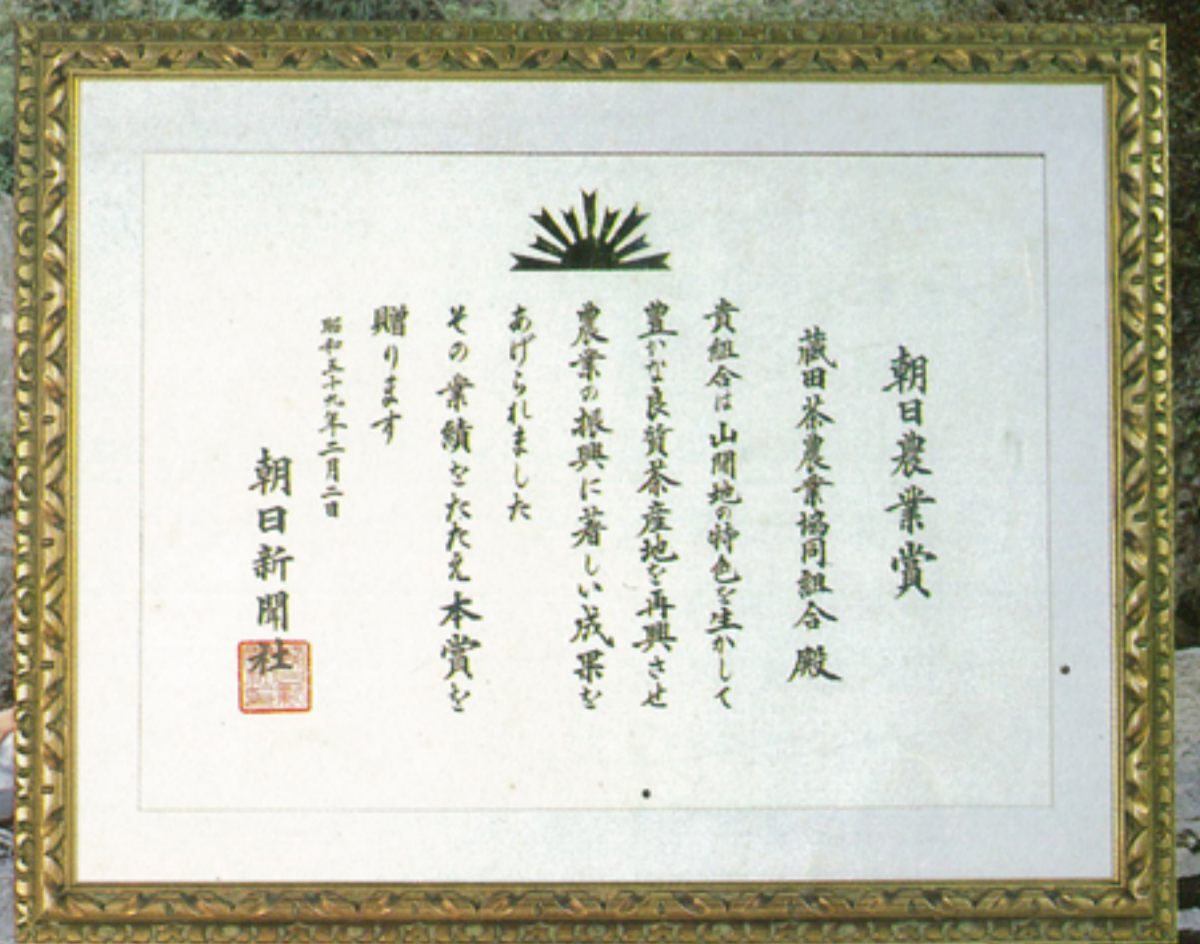 朝日農業賞
蔵田茶農業協同組合殿
貴組合は山間地の特色を生かして
豊かな良質茶産地を再興させ
農業の振興に著しい成果を
あげられました
その業績をたたえ本賞を
贈ります
昭和五十九年三月二日
朝日新聞社